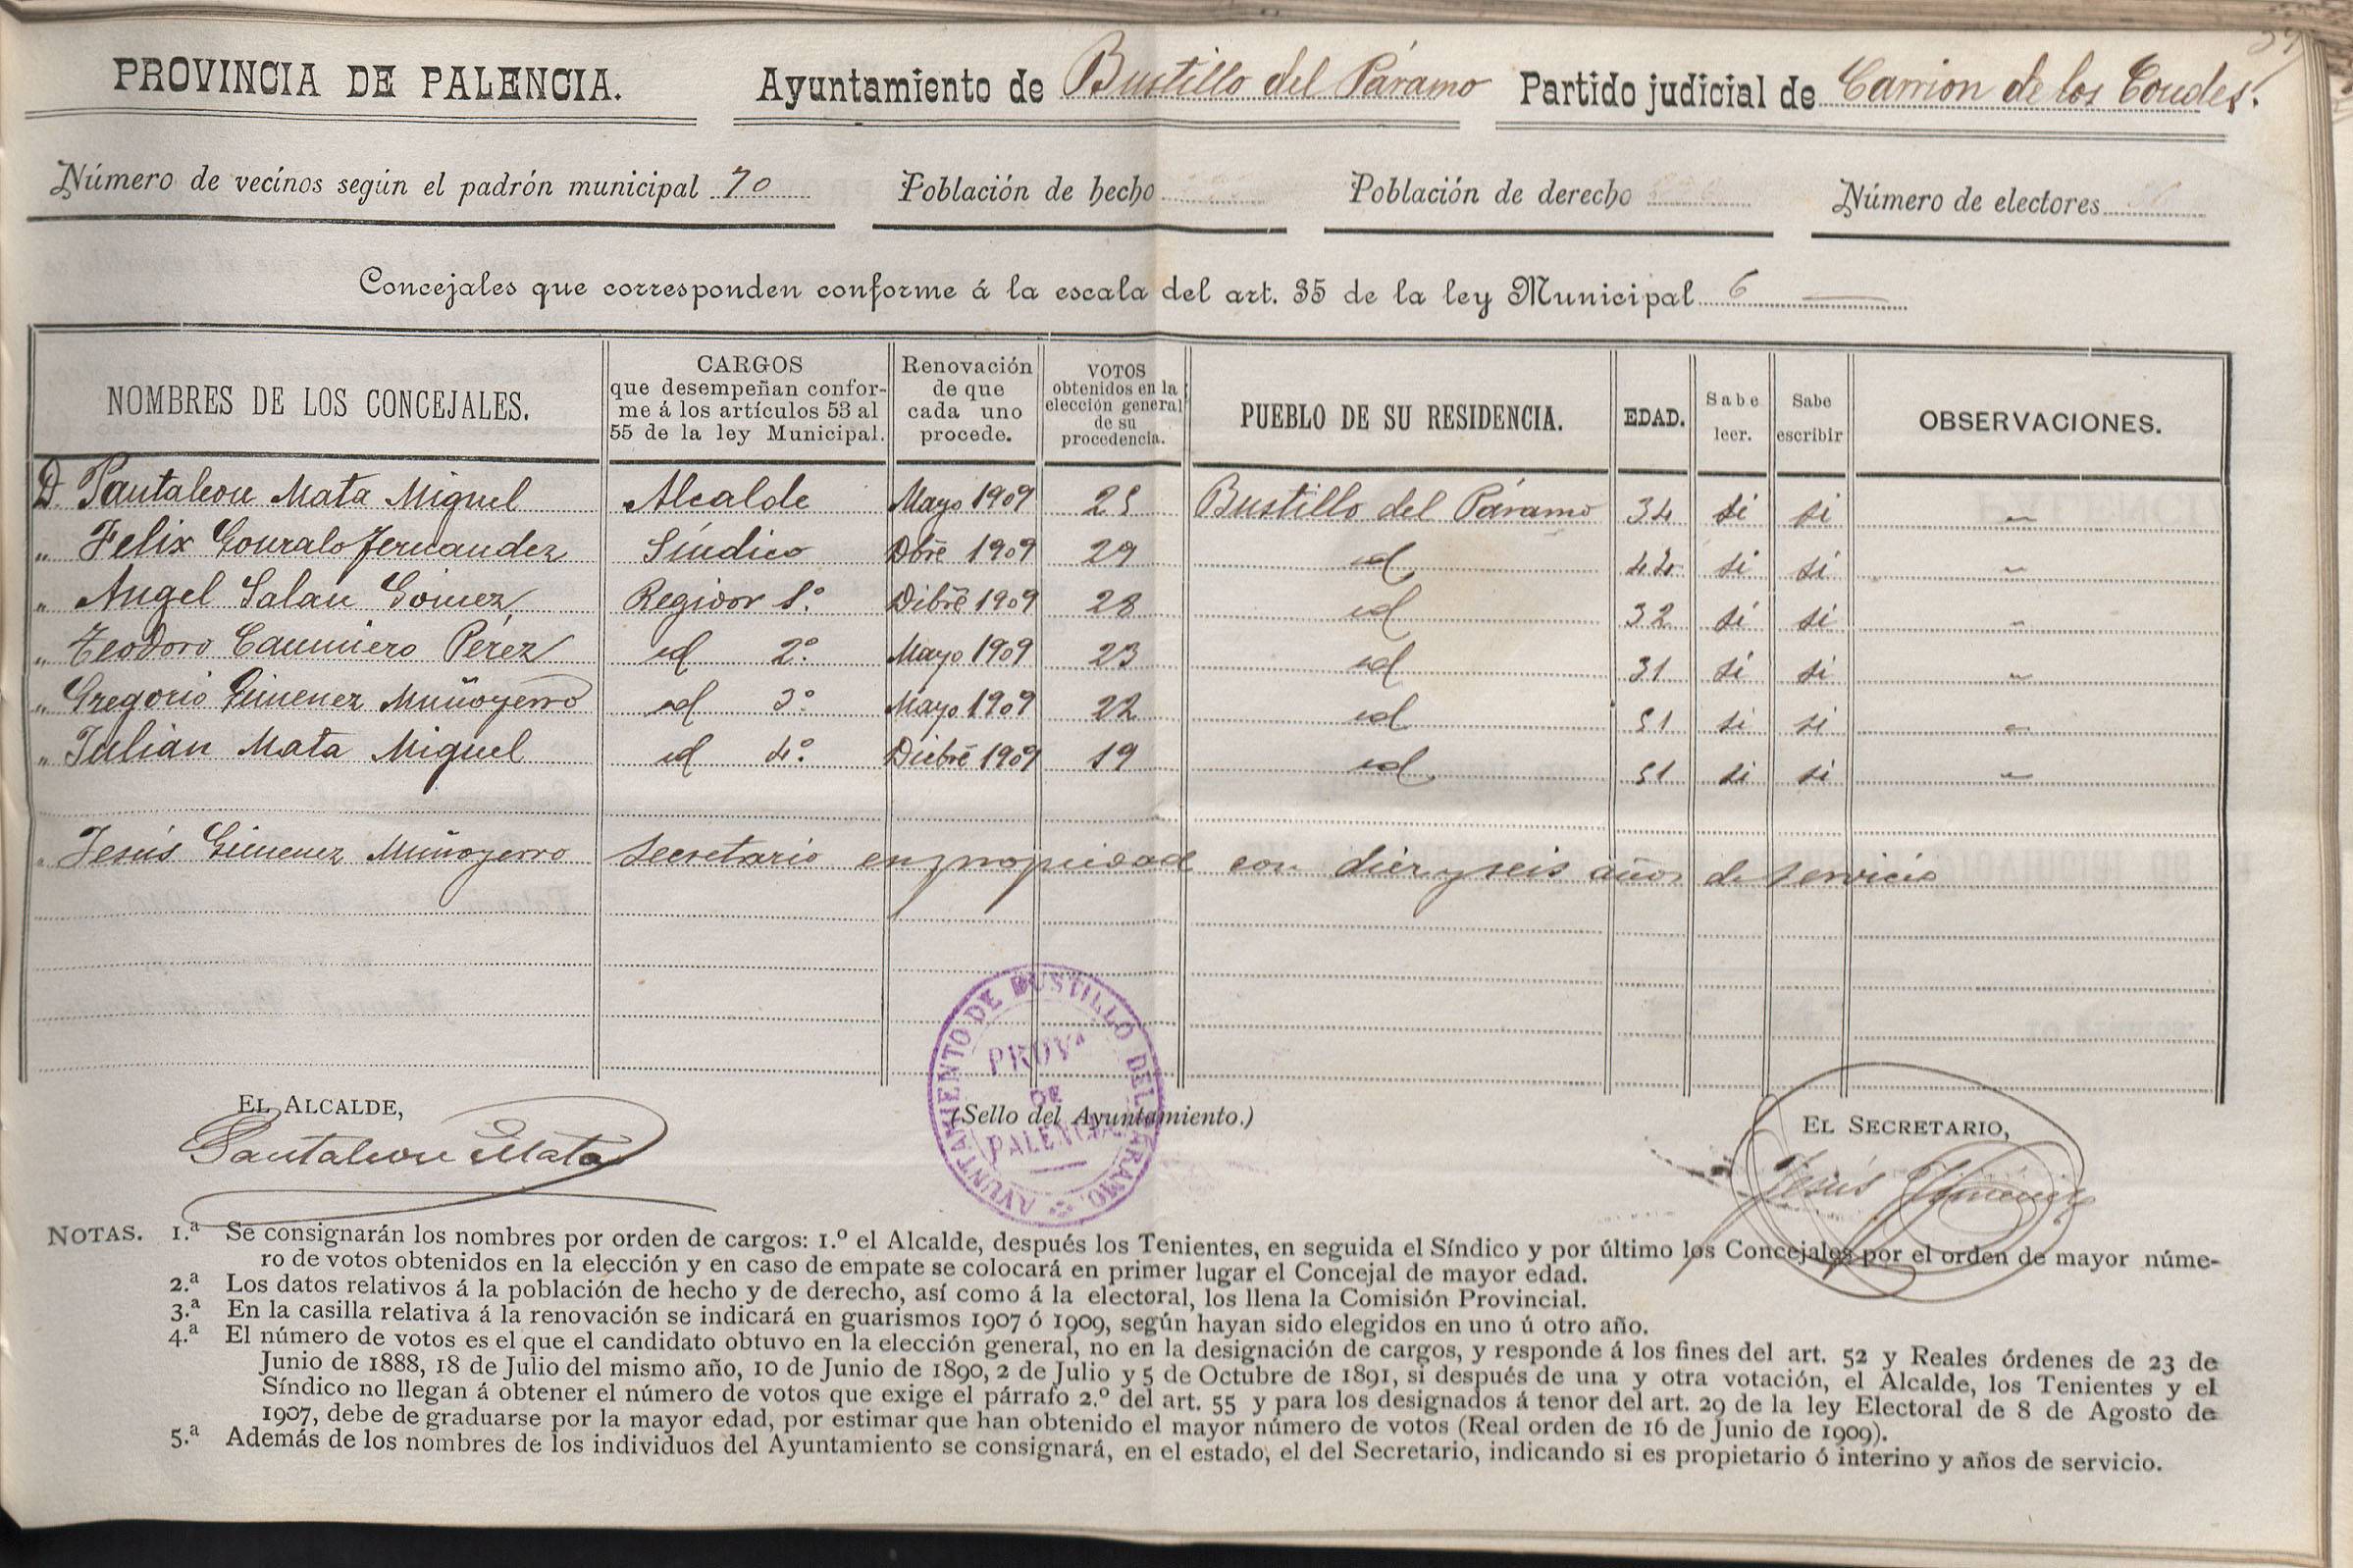 PROVINCIA DE PALENCIA. Ayuntamiento de Bustillo del Páramo Partido judicial de Carrion de los Condes.
Número de vecinos según el padrón municipal 70 Población de hecho Población de derecho Número de electores
Concejales que corresponden conforme á la escala del art. 35 de la ley Municipal 6
NOMBRES DE LOS CONCEJALES. CARGOS que desempeñan confor- me á los artículos 53 al 55 de la ley Municipal. Renovación de que cada uno procede. VOTOS obtenidos en la elección general de su procedencia. PUEBLO DE SU RESIDENCIA. EDAD. Sabe leer. Sabe escribir OBSERVACIONES.
D. Pantaleon Mata Miguel Alcalde Mayo 1909 25 Bustillo del Páramo 34 si si "
" Felix Gonzalo Fernandez Síndico Dbre 1909 29 id 44 si si "
" Angel Salan Gomez Regidor 1.º Dibre 1909 28 id 32 si si "
" Teodoro Caminero Pérez id 2.º Mayo 1909 23 id 31 si si "
" Gregorio Gimenez Muñoyerro id 3.º Mayo 1909 22 id 51 si si "
" Julian Mata Miguel id 4.º Dicbre 1909 19 id 51 si si "
" Jesús Gimenez Muñoyerro Secretario en propiedad con diez y seis años de servicio
EL ALCALDE,
Pantaleon Mata
(Sello del Ayuntamiento.)
AYUNTAMIENTO DE BUSTILLO DEL PARAMO.
PROVª
DE
PALENCIA
EL SECRETARIO,
Jesús Gimenez
NOTAS. 1.ª Se consignarán los nombres por orden de cargos: 1.º el Alcalde, después los Tenientes, en seguida el Síndico y por último los Concejales por el orden de mayor núme-
ro de votos obtenidos en la elección y en caso de empate se colocará en primer lugar el Concejal de mayor edad.
2.ª Los datos relativos á la población de hecho y de derecho, así como á la electoral, los llena la Comisión Provincial.
3.ª En la casilla relativa á la renovación se indicará en guarismos 1907 ó 1909, según hayan sido elegidos en uno ú otro año.
4.ª El número de votos es el que el candidato obtuvo en la elección general, no en la designación de cargos, y responde á los fines del art. 52 y Reales órdenes de 23 de
Junio de 1888, 18 de Julio del mismo año, 10 de Junio de 1890, 2 de Julio y 5 de Octubre de 1891, si después de una y otra votación, el Alcalde, los Tenientes y el
Síndico no llegan á obtener el número de votos que exige el párrafo 2.º del art. 55 y para los designados á tenor del art. 29 de la ley Electoral de 8 de Agosto de
1907, debe de graduarse por la mayor edad, por estimar que han obtenido el mayor número de votos (Real orden de 16 de Junio de 1909).
5.ª Además de los nombres de los individuos del Ayuntamiento se consignará, en el estado, el del Secretario, indicando si es propietario ó interino y años de servicio.